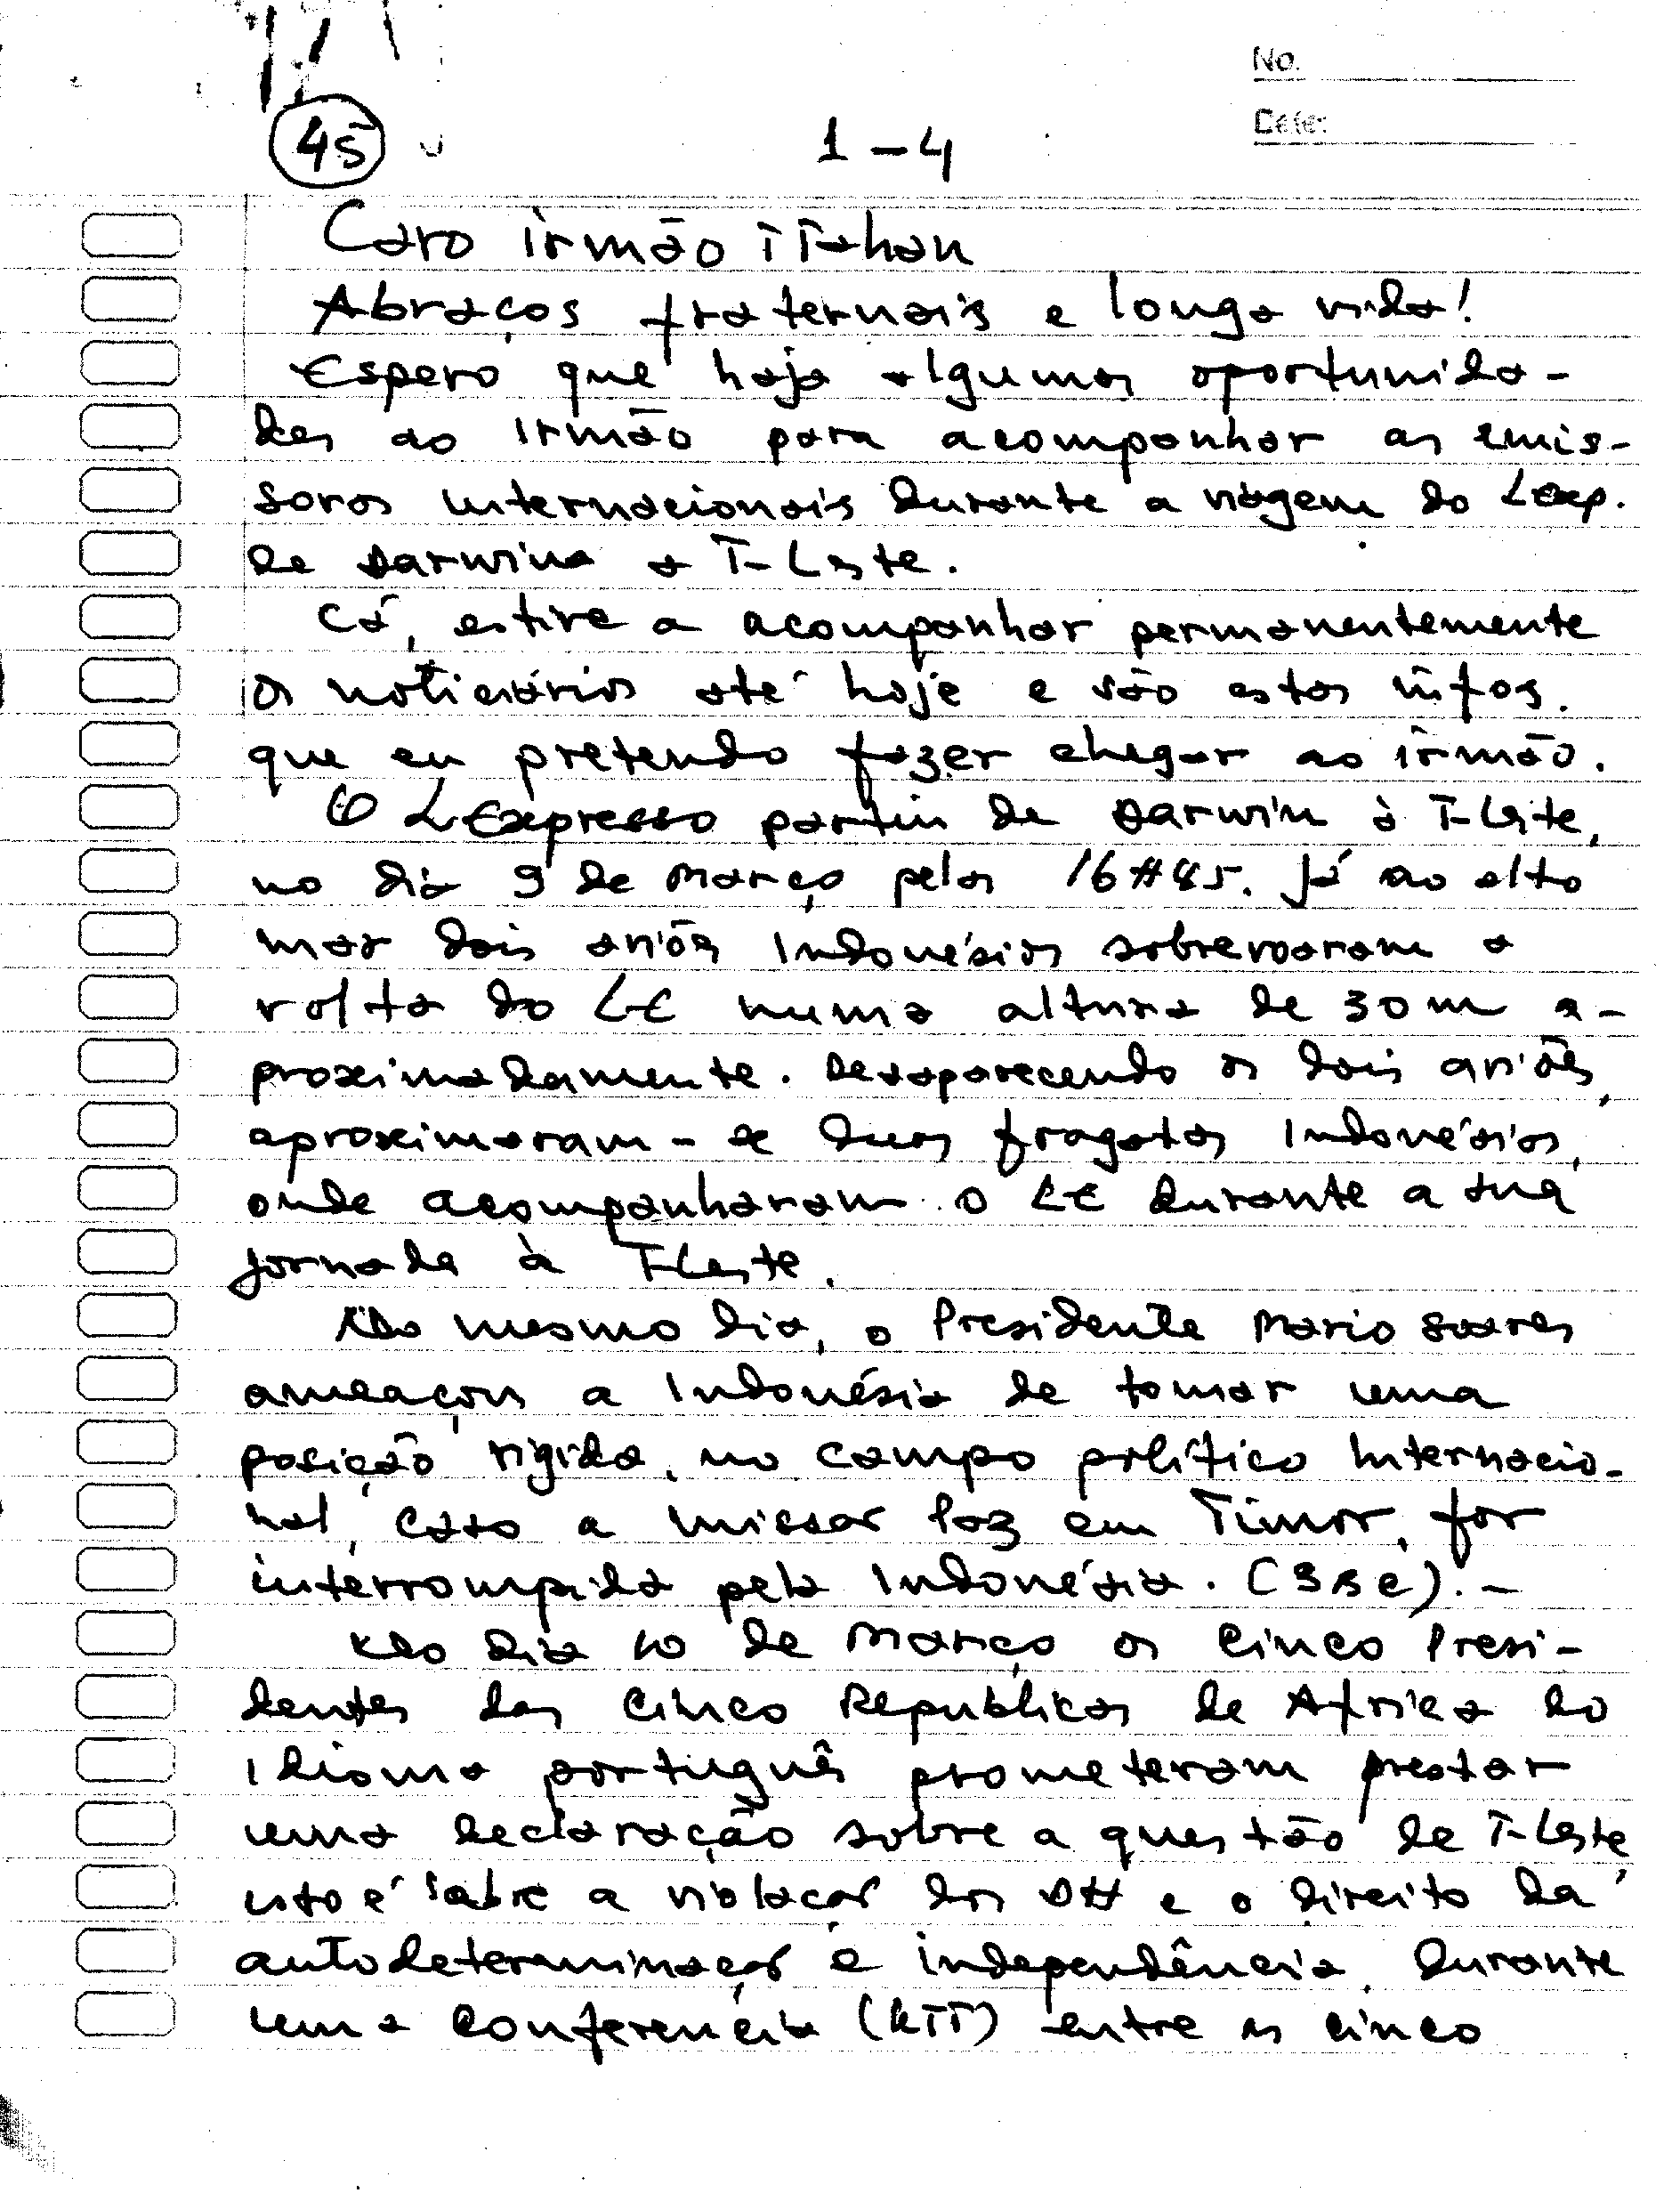 No.
Date:
45
1-4
Caro irmão iTahan
Abraços fraternais e longa vida!
Espero que haja algumas oportunida-
des ao irmão para acompanhar as emis-
soras internacionais durante a viagem do Lexp.
de Darwin a T-Leste.
Cá, estive a acompanhar permanentemente
os noticiários até hoje e são estas infos.
que eu pretendo fazer chegar ao irmão.
O LExpresso partiu de Darwin à T-Leste,
no dia 9 de Março pelas 16H45. Já ao alto
mar dois aviões Indonésios sobrevoaram a
volta do LE numa altura de 30m a-
proximadamente. Desaparecendo os dois aviões,
aproximaram-se duas fragatas Indonésias,
onde acompanharam o LE durante a sua
jornada à T-Leste.
No mesmo dia, o Presidente Mario Soares
ameaçou a Indonésia de tomar uma
posição rigida, no campo político Internacio-
nal, caso a missão Paz em Timor, for
interrompida pela Indonésia. (BBC).-
No dia 10 de Março os cinco Presi-
dentes das cinco Republicas de Africa do
Idioma português prometeram prestar
uma declaração sobre a questão de T-Leste,
isto é sobre a violação dos DH e o direito da
autodeterminação e independência, durante
uma conferencia (KTT) entre os cinco